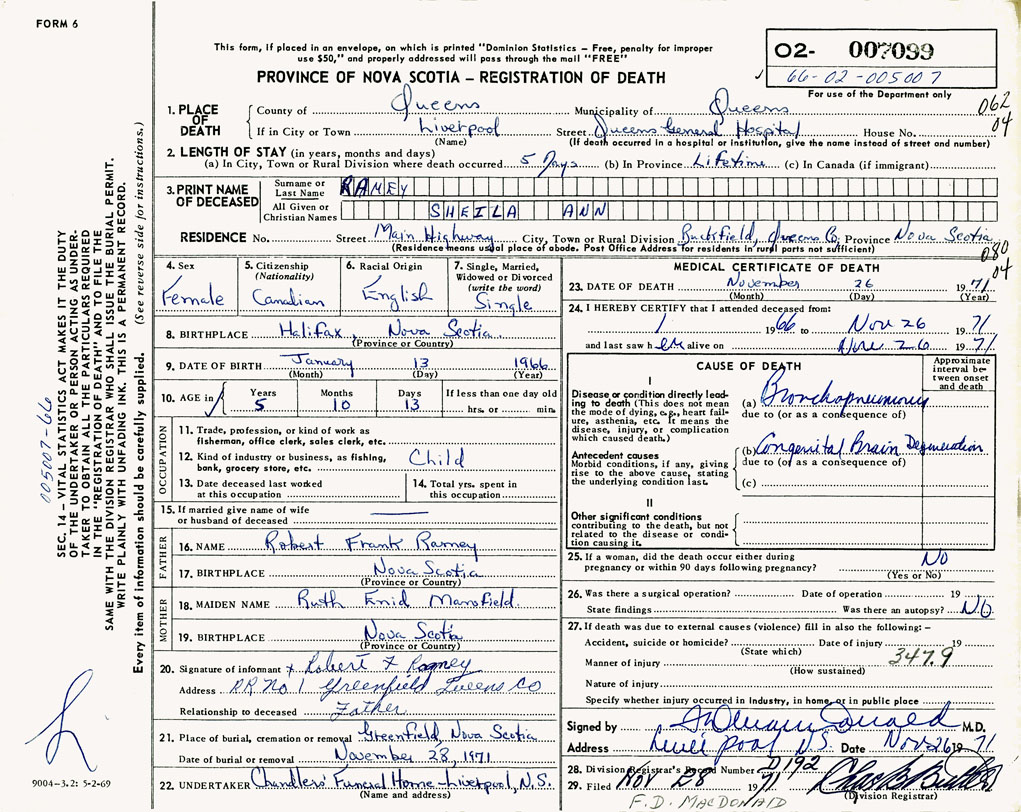 FORM 6
This form, if placed in an envelope, on which is printed "Dominion Statistics – Free, penalty for improper
use $50," and properly addressed will pass through the mail "FREE"
PROVINCE OF NOVA SCOTIA – REGISTRATION OF DEATH
02- 007099
66-02-005007
For use of the Department only
062
04
1. PLACE OF DEATH
County of Queens Municipality of Queens
If in City or Town Liverpool Street Queens General Hospital House No.
(Name) (If death occurred in a hospital or institution, give the name instead of street and number)
2. LENGTH OF STAY (in years, months and days)
(a) In City, Town or Rural Division where death occurred 5 Days (b) In Province Lifetime (c) In Canada (if immigrant)
3. PRINT NAME OF DECEASED
Surname or Last Name RAMEY
All Given or Christian Names SHEILA ANN
RESIDENCE No. Street Main Highway City, Town or Rural Division Queens Co. Province Nova Scotia
(Residence means usual place of abode. Post Office Address for residents in rural parts not sufficient)
080
04
4. Sex
Female
5. Citizenship
(Nationality)
Canadian
6. Racial Origin
English
7. Single, Married,
Widowed or Divorced
(write the word)
Single
8. BIRTHPLACE Halifax, Nova Scotia
(Province or Country)
9. DATE OF BIRTH January 13 1966
(Month) (Day) (Year)
10. AGE in
Years Months Days If less than one day old
5 10 13 hrs. or min.
OCCUPATION
11. Trade, profession, or kind of work as
fisherman, office clerk, sales clerk, etc.
12. Kind of industry or business, as fishing,
bank, grocery store, etc. Child
13. Date deceased last worked
at this occupation
14. Total yrs. spent in
this occupation
15. If married give name of wife
or husband of deceased
FATHER
16. NAME Robert Frank Ramey
17. BIRTHPLACE Nova Scotia
(Province or Country)
MOTHER
18. MAIDEN NAME Ruth Enid Mansfield.
19. BIRTHPLACE Nova Scotia
(Province or Country)
20. Signature of informant x Robert F Ramey
Address RR No 1 Greenfield Queens Co
Relationship to deceased Father
21. Place of burial, cremation or removal Greenfield, Nova Scotia
Date of burial or removal November 28, 1971
22. UNDERTAKER Chandlers' Funeral Home – Liverpool, N.S.
(Name and address)
MEDICAL CERTIFICATE OF DEATH
23. DATE OF DEATH November 26 1971
(Month) (Day) (Year)
24. I HEREBY CERTIFY that I attended deceased from:
1 1966 to Nov 26 1971
and last saw h er alive on Nov 26 1971
CAUSE OF DEATH
Approximate
interval be-
tween onset
and death
I
Disease or condition directly lead-
ing to death (This does not mean
the mode of dying, e.g., heart fail-
ure, asthenia, etc. It means the
disease, injury, or complication
which caused death.)
(a) Bronchopneumonia
due to (or as a consequence of)
Antecedent causes
Morbid conditions, if any, giving
rise to the above cause, stating
the underlying condition last.
(b) Congenital Brain Degeneration
due to (or as a consequence of)
(c)
II
Other significant conditions
contributing to the death, but not
related to the disease or condi-
tion causing it.
25. If a woman, did the death occur either during
pregnancy or within 90 days following pregnancy? No
(Yes or No)
26. Was there a surgical operation? Date of operation 19
State findings Was there an autopsy? No
27. If death was due to external causes (violence) fill in also the following: –
Accident, suicide or homicide? Date of injury 19
(State which)
347.9
Manner of injury
(How sustained)
Nature of injury
Specify whether injury occurred in Industry, in home, or in public place
Signed by M.D.
Address Liverpool N.S. Date Nov 26 1971
28. Division Registrar's Record Number D192
29. Filed NOV 28 1971
(Division Registrar)
F.D. MACDONALD
005007-66
SEC. 14 – VITAL STATISTICS ACT MAKES IT THE DUTY
OF THE UNDERTAKER OR PERSON ACTING AS UNDER-
TAKER TO OBTAIN ALL THE PARTICULARS REQUIRED
IN THE "REGISTRATION OF DEATH" AND TO FILE THE
SAME WITH THE DIVISION REGISTRAR WHO SHALL ISSUE THE BURIAL PERMIT.
WRITE PLAINLY WITH UNFADING INK. THIS IS A PERMANENT RECORD.
Every item of information should be carefully supplied. (See reverse side for instructions.)
9004-3.2: 5-2-69